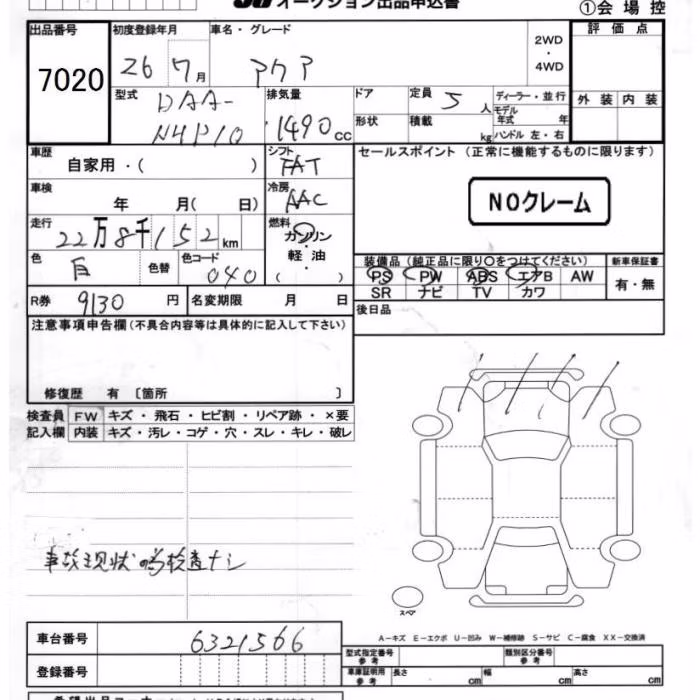 オークション出品申込書
①会場控
出品番号 初度登録年月 車名・グレード 評価点
7020 26 7月 アクア 2WD・4WD
型式 DAA-NHP10 排気量 1490cc ドア 定員 5人 ディーラー・並行 外装 内装
モデル年式 年
形状 積載 kg ハンドル 左・右
車歴 シフト セールスポイント (正常に機能するものに限ります)
自家用・( ) FAT
車検 冷房 NOクレーム
年 月( 日) AAC
走行 22万8千152km 燃料 ガソリン・軽油 ( )
色 白 色替 色コード 040
装備品 (純正品に限り○をつけてください) 新車保証書
PS PW ABS エアB AW 有・無
SR ナビ TV カワ
R券 9130円 名変期限 月 日 後日品
注意事項申告欄(不具合内容等は具体的に記入して下さい)
修復歴 有 〔箇所 〕
検査員 FW キズ・飛石・ヒビ割・リペア跡・×要
記入欄 内装 キズ・汚レ・コゲ・穴・スレ・キレ・破レ
事故現状の為検査ナシ
スペア
A-キズ E-エクボ U-凹み W-補修跡 S-サビ C-腐食 XX-交換済
車台番号 6321566
型式指定番号 参考 類別区分番号 参考
登録番号 車庫証明用 参考 長さ cm 幅 cm 高さ cm